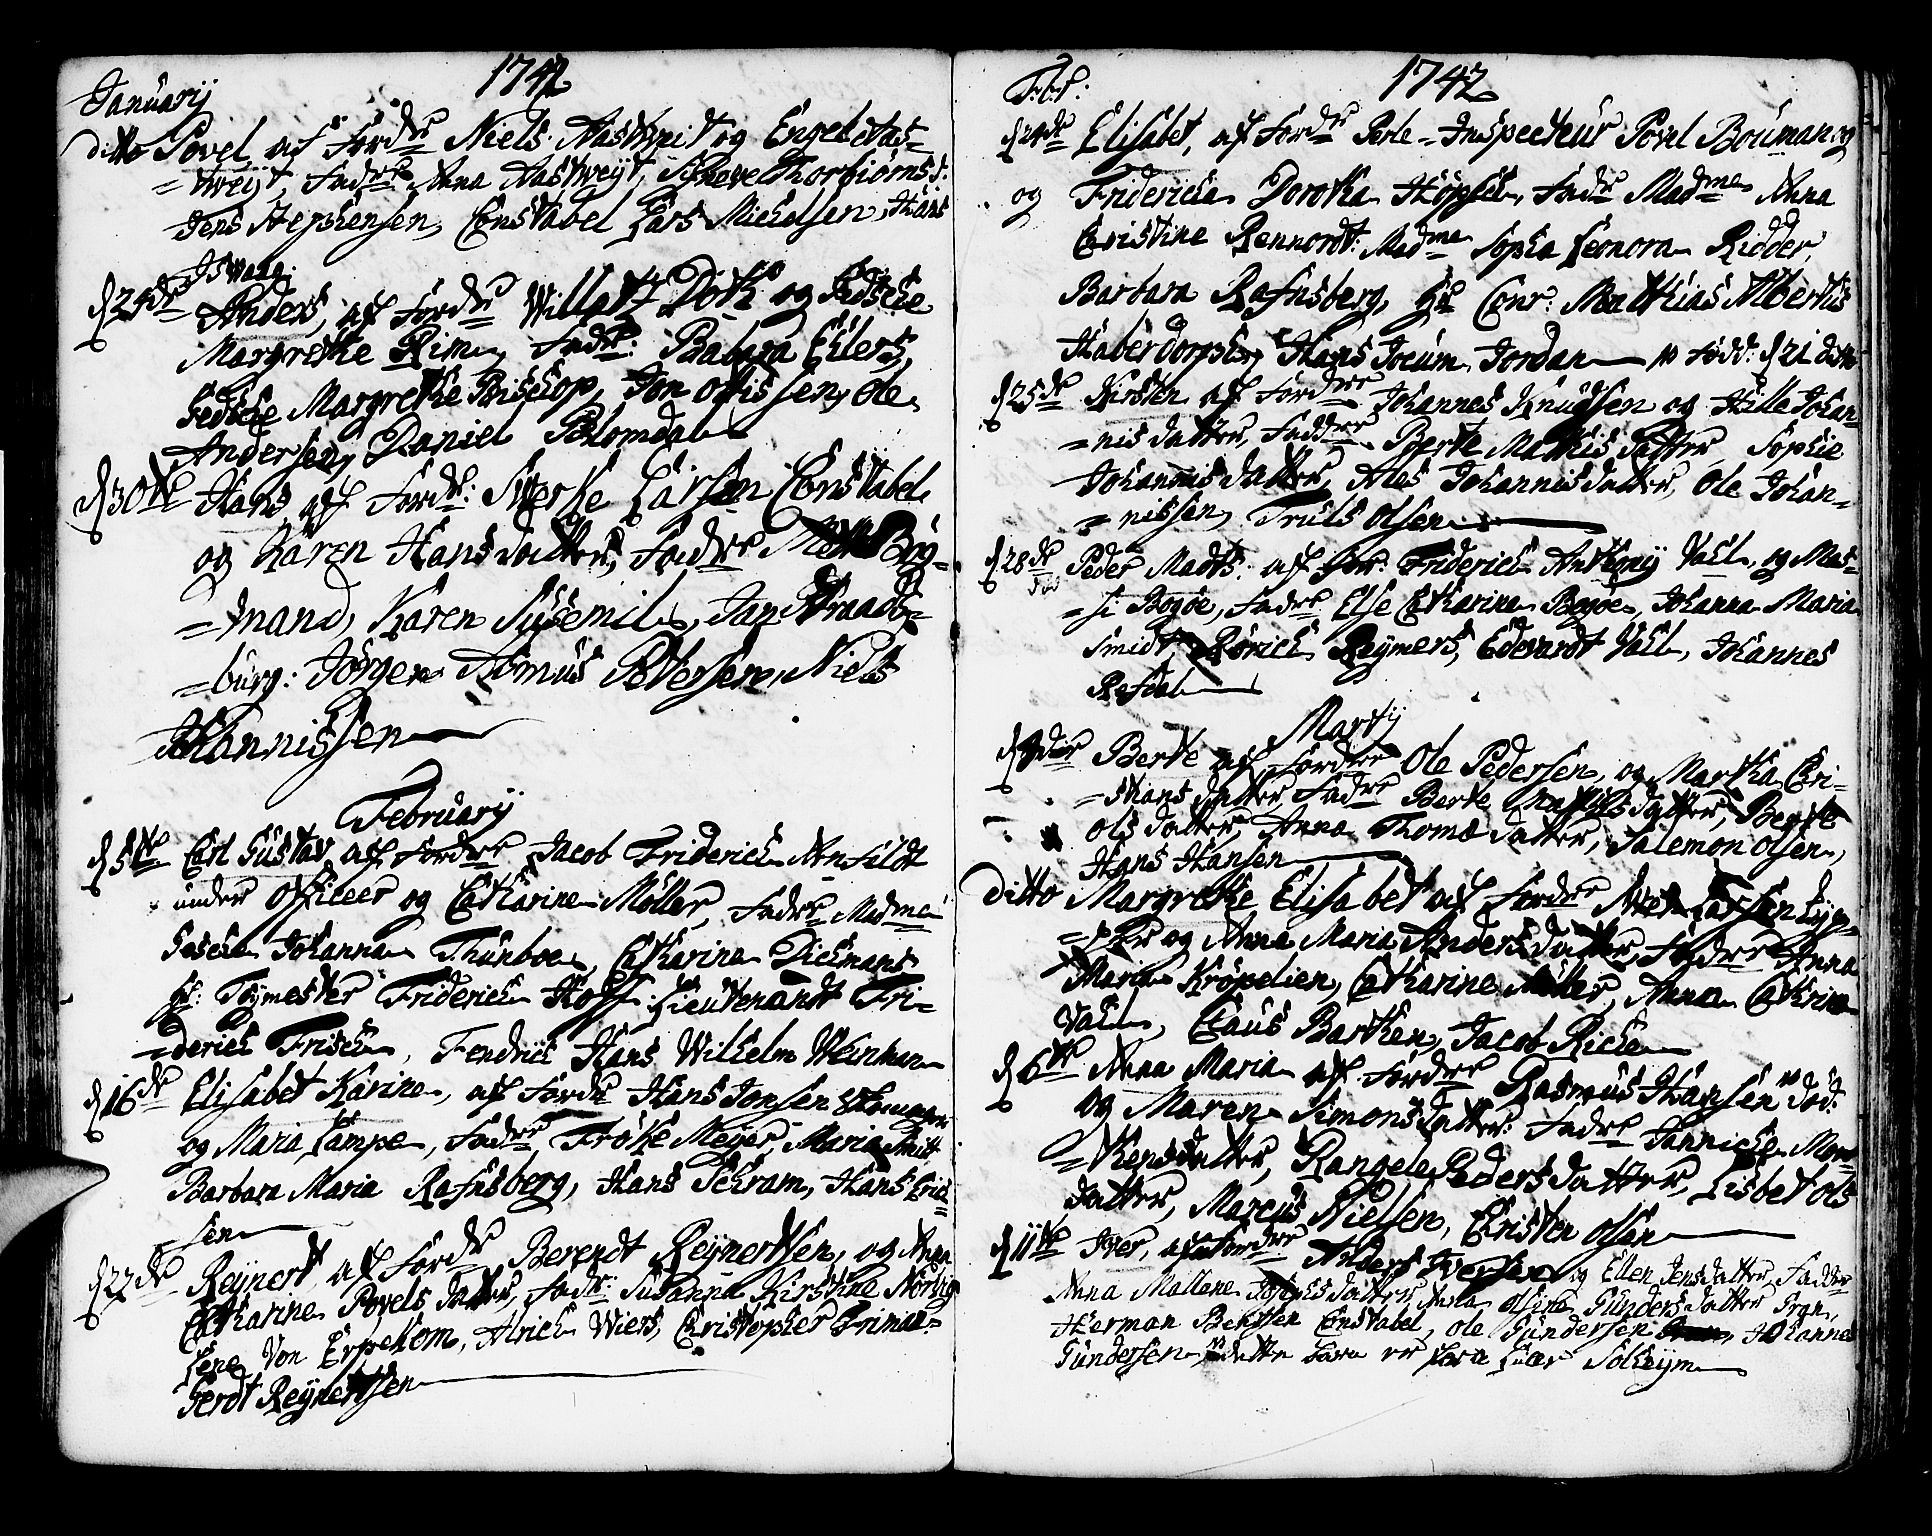 January 1742
ditto Povel, af Fordre Niels Aastveit og Engel Aas-
= tveijt, Fadre Anna Aastveijt, Thorbiørns d:
Jens Stephensen, Constabel Lars Michelsen, Hans
Isvaag:
d 24de Anders, af Fordre Willatz Doth og Gidsche
Margrethe Rim, Fadre: Babara Eilers,
Gedsche Margrethe Biscop, Jon Ottissen, Ole
Andersen, Daniel Blomdal
d 30te Hans af Fordre: Sverke Larsen Constabel
og Karen Hansdatter, Fadre Børg-
= mand, Karen Susemil, Jan Straads-
= burg: Jørgen Asmus Petersen, Niels
Johannissen
February
d 5te Carl Gustav af Fordre Jacob Friderich Ahnfeldt
under Officeer og Catharine Møller, Fadre Madme
Gesche Johanna Thunboe, Catharina Dickmans
Hr: Tøjmester Friderich Hoff. Lieutenandt Fri-
= derich Frisch, Fendrich Hans Wilhelm Weinman
d 16de Elisabet Karine, af Fordre Hans Jonsen
og Maria Lampe, Fadre Frøke Meyer, Maria Smit
Barbara Maria Rafnsberg, Hans Schram, Hans Erich=
= sen
d 22de Reijnert af Fordre Berendt Reijnertsen, og Anna
Catharine Povels datter, Fadr: Susanna Kirstine Nordvig
Lene Von Erpekom, Alrich Wiers, Christopher Friman
Gerdt Reijnertsen
Febr: 1742
d 24de Elisabet, af Fordre Perle-Inspecteur Povel Bouman og
og Fridericha Dorothea Høpfel, Fadr Madme Anna
Christine Rennordt: Madme Sophia Leonora Ridder,
Barbara Rafnsberg, Hr Conr. Matthias Albertus
Haberdorpsen, Hans Jocum Jordan Fødd: d 21 ditto
d 25de Kirsten af Fordre Johannes Knudsen og Hille Johan-
= nis datter, Faddre Berte Mathis datter, Sophie
Johannis datter, Ales Johannis datter, Ole Johan-
= nissen, Truls Olsen
d 28de Peder Madts: af For: Friderich Anthonij Vahl, og Mas-
= si Bogøe, Fadre Else Catharina Bogøe, Johanna Maria
Smidt, Rørich Reijmers, Edevardt Vahl, Johannes
Refdal
Martij
d 4der Berte af Fordre Ole Pedersen, og Martha Chri-
= sthans datter, Fadre Berte Mathisdatter, Begte
Olsdatter, Anna Thomædatter, Salemon Olsen,
Hans Hansen
ditto Margrethe Elisabet af Fordre Larsen
og Anna Maria Andersdatter, Fadre Anna
Maria Krøpelien, Catharine Møller, Anna Cathrine
Vahl, Claus Barthen, Jacob Riche
d 6te Anna Maria af Fordre Rasmus Hansen død:
og Maren Simonsdatter: Fadre Jannicke Mor-
= tensdatter, Rangele Pedersdatter, Lisbet Ols
datter, Marcus Nielsen, Christen Olsen
d 11te Iver, af Fordre Anders Iversen og Ellen Jensdatter, Faddre
Anna Mallene Josephsdatter, Anna Olfine Gundersdatter Gran,
Herman Bentsen Constabel, Ole Gundersen, Johannes
Gundersen, dette barn er fra Solheijm